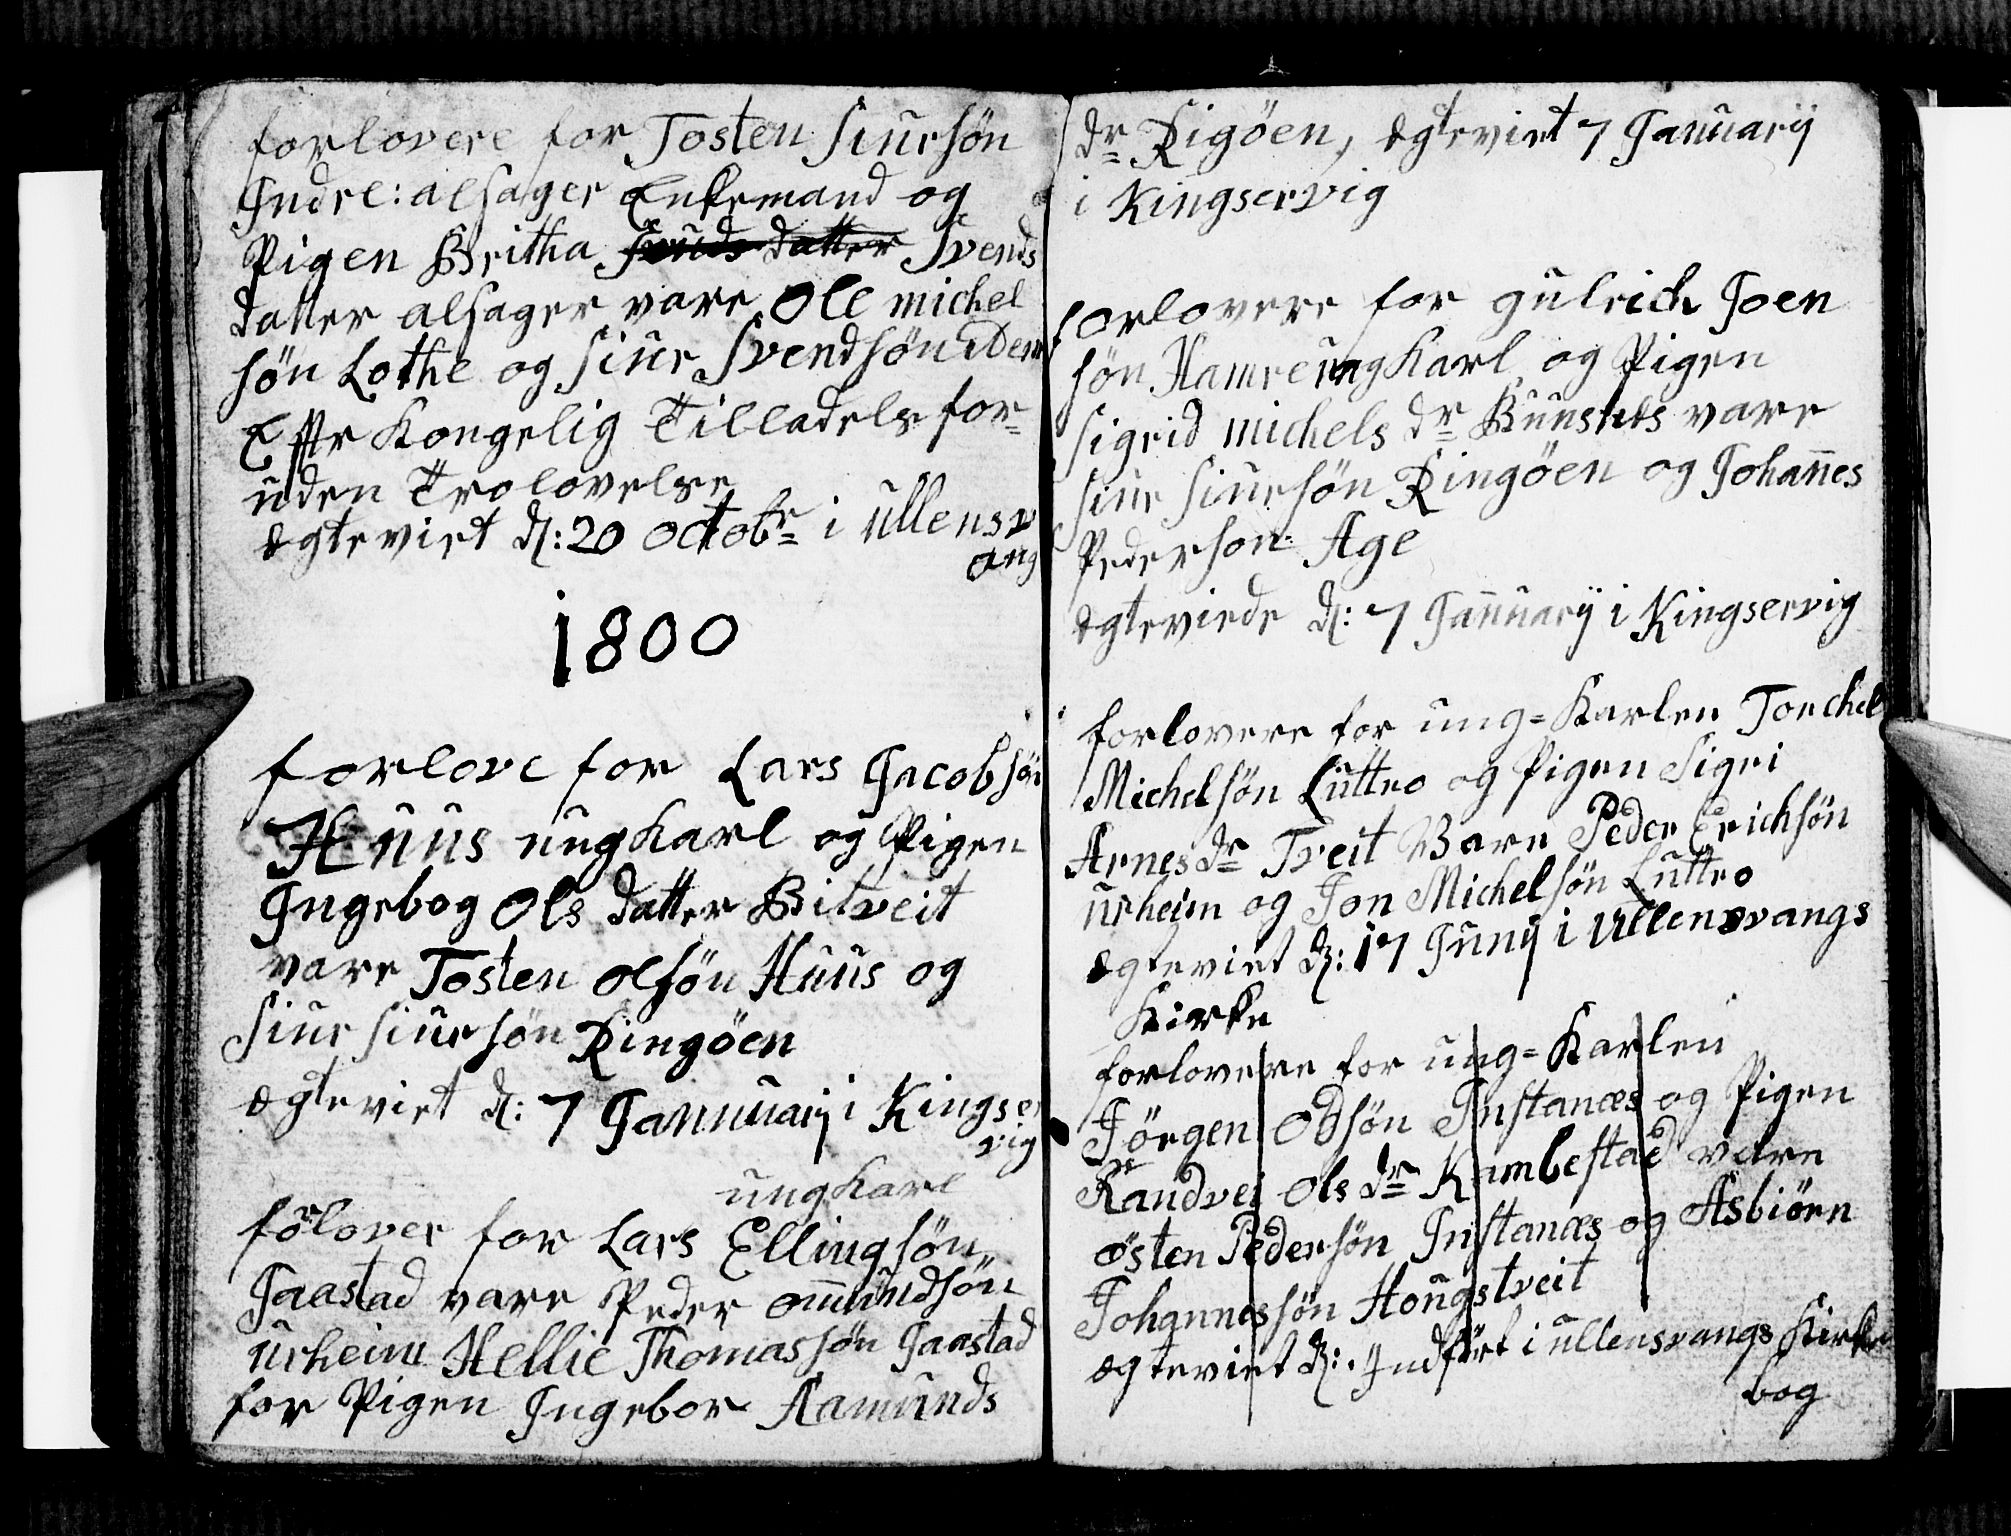 forlovere for Tosten Siursøn
Indre: alsager Enkemand og
Pigen Britha Svends datter Svends
datter alsager vare Ole michel
søn Lothe og Siur Svendsøn Idem
Efter Kongelig Tilladelse for-
uden Trolovelse
ægteviet d: 20 Octobr i ullensv
ang
1800
forlove for Lars Jacobsøn
Huus ungkarl og Pigen
Ingebog Ols datter Bitveit
vare Tosten olsøn Huus og
Siur Siursøn Ringøen
ægteviet d: 7 Januuarij i Kingser
vig
ungkarl
forlover for Lars Ellingsøn
Jaastad vare Peder omundsøn
urheim Hellie Thomassøn Jaastad
for Pigen Ingebor Aamunds
dr Rigøen, ægteviet 7 Januarij
i Kingservig
forlovere for gulrich Joen
søn Hamre ungkarl og Pigen
Sigrid michels dr Buustets vare
Siur Siursøn Ringøen og Johannes
Pederson Age
ægteviede d: 7 Januuarij i Kingservig
forlovere for ung=Karlen Torchel
Michelsøn Luttro og Pigen Sigri
Arnes dr Tveit Vare Peder Erichsøn
urheim og Jon Michelsøn Luttro
ægteviet d: 17 Junij i Ullensvangs
Kirke
forlovere for ung=Karlen
Jørgen Odsøn Instanæs og Pigen
Randvei Ols dr Kambestad vare
østen Pedersøn Instanæs og Asbiørn
Johannessøn Hougstveit
ægteviet d: Indført i ullensvangs Kirke
bog